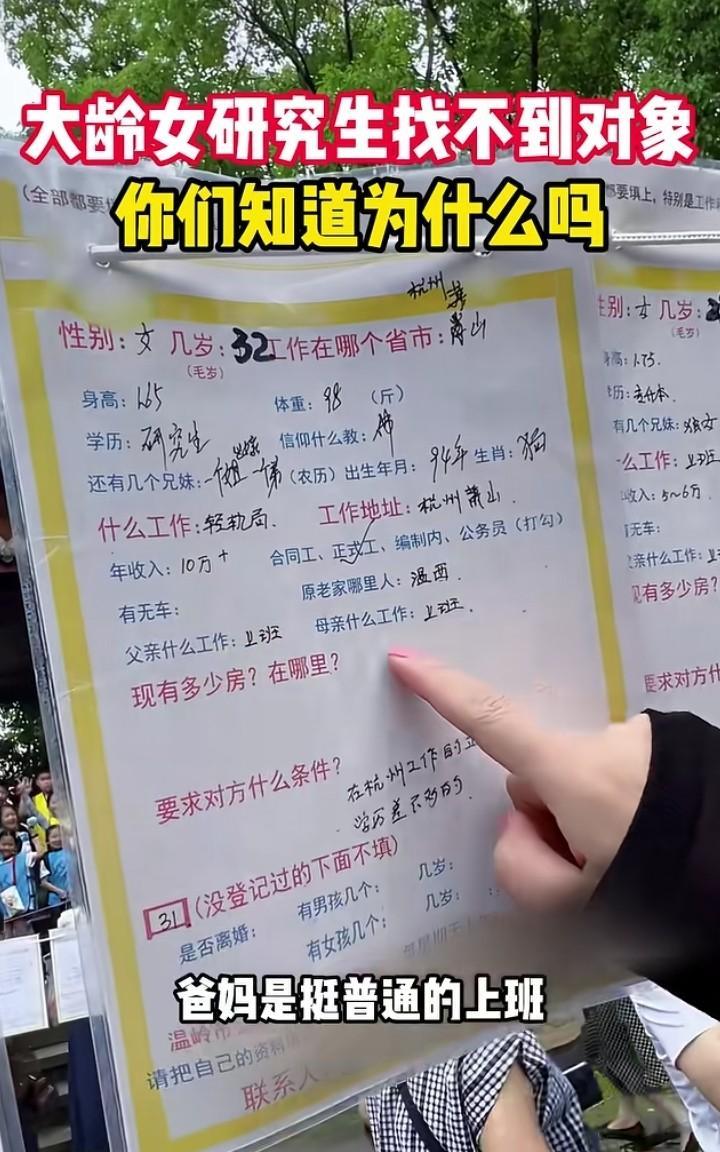 大龄女研究生找不到对象
你们知道为什么吗
(全部都要
都要填上，特别是工作
杭州
萧山
性别：女 几岁：32 工作在哪个省市：
(毛岁)
身高：165 体重：98 (斤)
学历：研究生 信仰什么教：佛
还有几个兄妹：一姐一弟 (农历) 出生年月：94年 生肖：狗
什么工作：轻轨局. 工作地址：杭州萧山.
年收入：10万+ 合同工、正式工、编制内、公务员（打勾）
有无车： 原老家哪里人：温西.
父亲什么工作：上班 母亲什么工作：上班.
现有多少房？在哪里？
要求对方什么条件？ 在杭州工作的
学历差不多的.
31 (没登记过的下面不填)
是否离婚： 有男孩几个： 几岁：
有女孩几个： 几岁：
温岭市
请把自己的资料
联系人
性别：女 几岁：
(毛岁)
身高：1.75.
学历：专升本.
有几个兄妹：独女
什么工作：上班
收入：5~6万.
有无车：
父亲什么工作：上
现有多少房？
要求对方什
爸妈是挺普通的上班